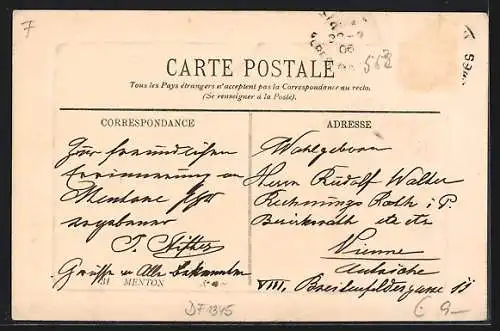 7
562
CARTE POSTALE
Tous les Pays étrangers n'acceptent pas la Correspondance au recto.
(Se renseigner à la Poste).
CORRESPONDANCE
ADRESSE
Zur freundlichen
Erinnerung an
Mentone Ihr
ergebener
Grüsse an Alle Bekannten
31 MENTON
Wohlgeboren
Herrn Rudolf Walter
Rechnungs Rath i. P.
Bezirksrath etc etc
Vienne
Autriche
VIII. Breitenfeldergasse 11
DF 1345
€ 9—